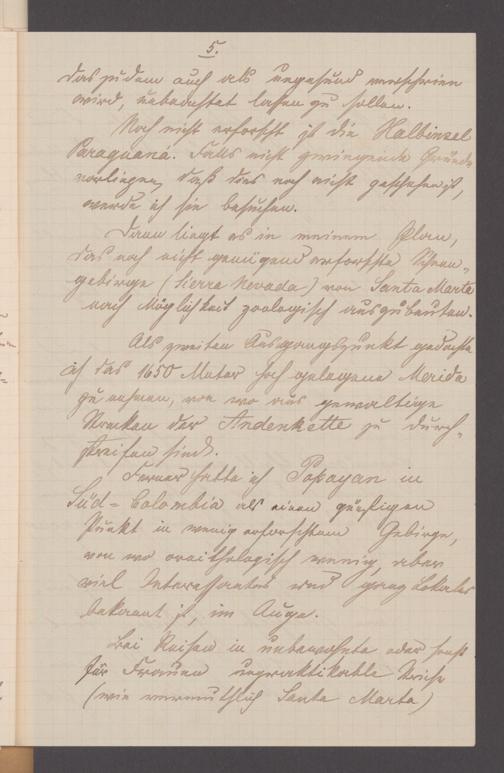 5.
das zudem auch als ungesund verschrien
wird, unbeachtet lassen zu sollen.
Noch nicht erforscht ist die Halbinsel
Paraguaná. Falls nicht zwingende Gründe
vorliegen, daß dies noch nicht geschehen ist,
werde ich sie besuchen.
Dann liegt es in meinem Plan,
das noch nicht genügend erforschte Schnee-
gebirge (Sierra Nevada) von Santa Marta
nach Möglichkeit zoologisch auszubeuten.
Als zweiten Ausgangspunkt gedachte
ich das 1650 Meter hoch gelegene Merida
zu nehmen, von wo aus gewaltige
Strecken der Andenkette zu durch-
streifen sind.
Ferner hatte ich Popayan in
Süd-Colombia als einen günstigen
Punkt in wenig erforschtem Gebirge,
von wo ornithologisch wenig, aber
viel Interessantes und ganz Lokales
bekannt ist, im Auge.
Bei Reisen in unbewohnte oder sonst
für Frauen unpraktikable Striche
(wie vermuthlich Santa Marta)